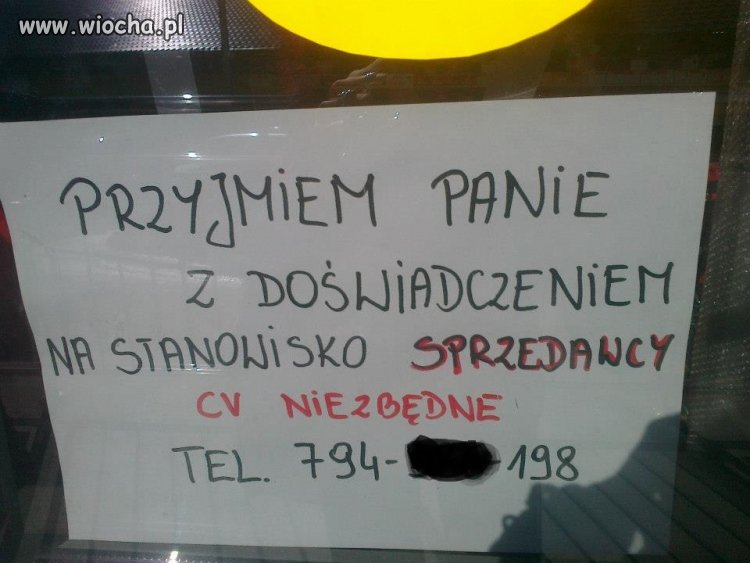 www.wiocha.pl
PRZYJMIEM PANIE
Z DOŚWIADCZENIEM
NA STANOWISKO SPRZEDAWCY
CV NIEZBĘDNE
TEL. 794- -198